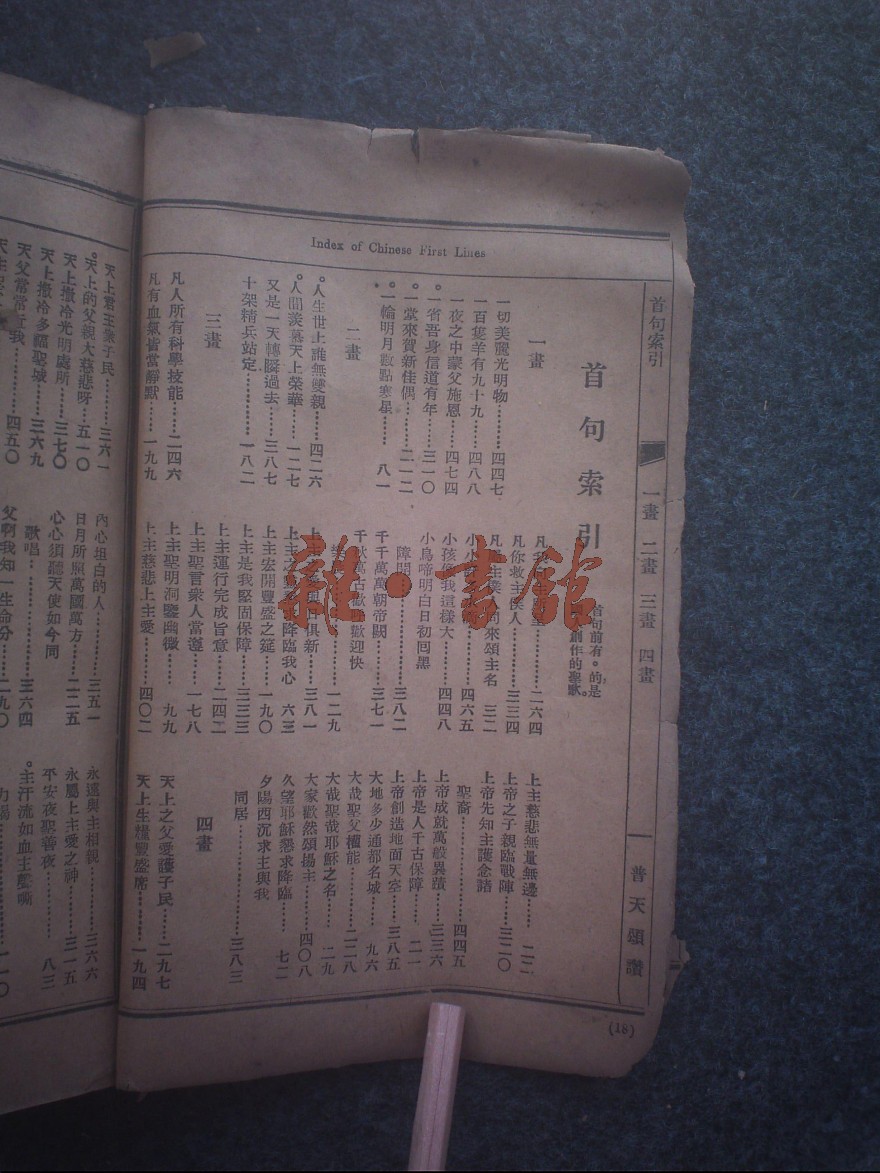 Index of Chinese First Lines
首句索引
一畫 二畫 三畫 四畫
普天頌讚
(18)
首句索引
一畫
一切美麗光明物……四四七
一百隻羊有九十九……四八八
一夜之中蒙父施恩……四七四
。一省吾身信道有年……三一〇
。一堂來賀新佳偶……二一二
。一輪明月數點寒星……八一
二畫
。人生世上誰無雙親……四二六
。人間羨慕天上榮華……一二七
又是一天轉瞬過去……三八七
十架精兵站定……一八二
三畫
凡人所有科學技能……二四六
凡有血氣皆當靜默……一九九
二六四
凡你救主僕人……三三四
來頌主名 三二
四六五
小孩像我這樣大……四四八
小鳥啼明白日初囘黑
障開……三八二
千千萬萬朝帝闕……三七一
千秋萬古歡迎歡迎快
一二九
俱新……三八一
降臨我心 六三
上主宏開豐盛之筵……一九〇
上主是我堅固保障……三三三
上主運行完成旨意……二四二
上主聖言衆人當遵……一七八
上主聖明洞鑒幽微……九九
上主慈悲上主愛……四〇二
上主慈悲無量無邊……二二
上帝之子親臨戰陣……三二〇
上帝先知主護念諸
聖裔……四四五
上帝成就萬般異蹟……三三六
上帝是人千古保障……二一
上帝創造地面天空……三八五
大地多少通都名城……九六
大哉聖父權能……二二八
大哉聖哉耶穌之名……二九
大家歡然頌揚主……四〇八
久望耶穌懇求降臨……七二
夕陽西沉求主與我
同居……三八三
四畫
天上之父愛護子民……二九七
天上生糧豐盛席……一九四
天上君王衆子民……三六一
。天上的父親大慈悲呀……五一〇
天上撒冷光明處所……三七〇
天上撒冷多福聖城……三六九
天父常常近我……四五〇
內心坦白的人……三五一
日月所照萬國萬方……一二五
心心須聽天使如今同
歌唱……三六四
父啊我知一生命分……二九〇
永遠與主相親……三六六
永屬上主愛之神……三一五
平安夜聖善夜……八三
。主汗流如血主聲嘶
力竭……一一〇
雜·書館